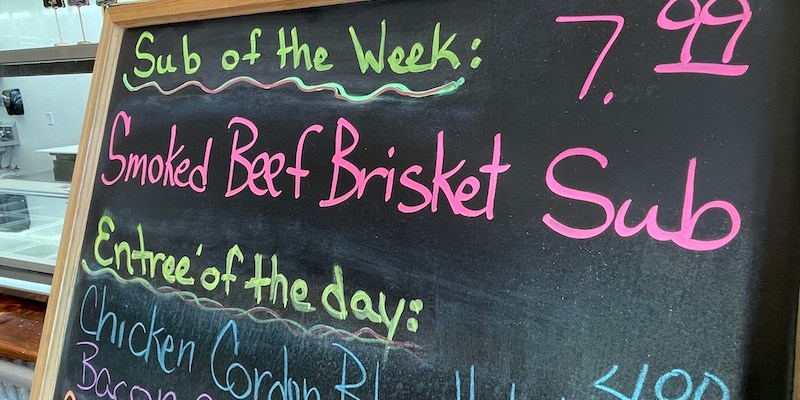 Sub of the Week: 7.99
Smoked Beef Brisket Sub
Entree' of the day:
Chicken Cordon
Bacon